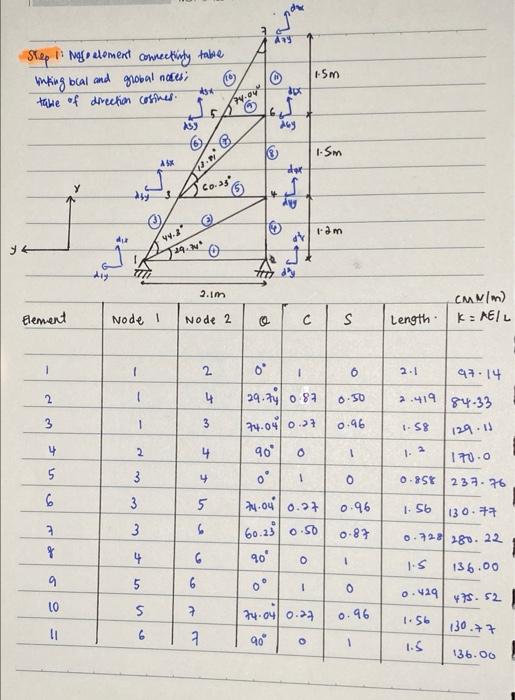 Step 1: element connectivity table
linking local and global nodes;
table of direction cosines.
7
d7x
d7y
1.5m
10
11
74.04°
5
9
6
d5x
d5y
d6x
d6y
6
7
8
1.5m
60.23°
3
5
4
d3x
d3y
d4x
d4y
Y
y
3
2
4
1.2m
44.3°
29.74°
1
1
2
d1x
d1y
d2x
d2y
2.1m
(MN/m)
Element Node 1 Node 2 Q C S Length. K = AE/L
1 1 2 0° 1 0 2.1 97.14
2 1 4 29.74° 0.87 0.50 2.419 84.33
3 1 3 74.04° 0.27 0.96 1.58 129.11
4 2 4 90° 0 1 1.2 170.0
5 3 4 0° 1 0 0.858 237.76
6 3 5 74.04° 0.27 0.96 1.56 130.77
7 3 6 60.23° 0.50 0.87 0.728 280.22
8 4 6 90° 0 1 1.5 136.00
9 5 6 0° 1 0 0.429 475.52
10 5 7 74.04° 0.27 0.96 1.56 130.77
11 6 7 90° 0 1 1.5 136.00